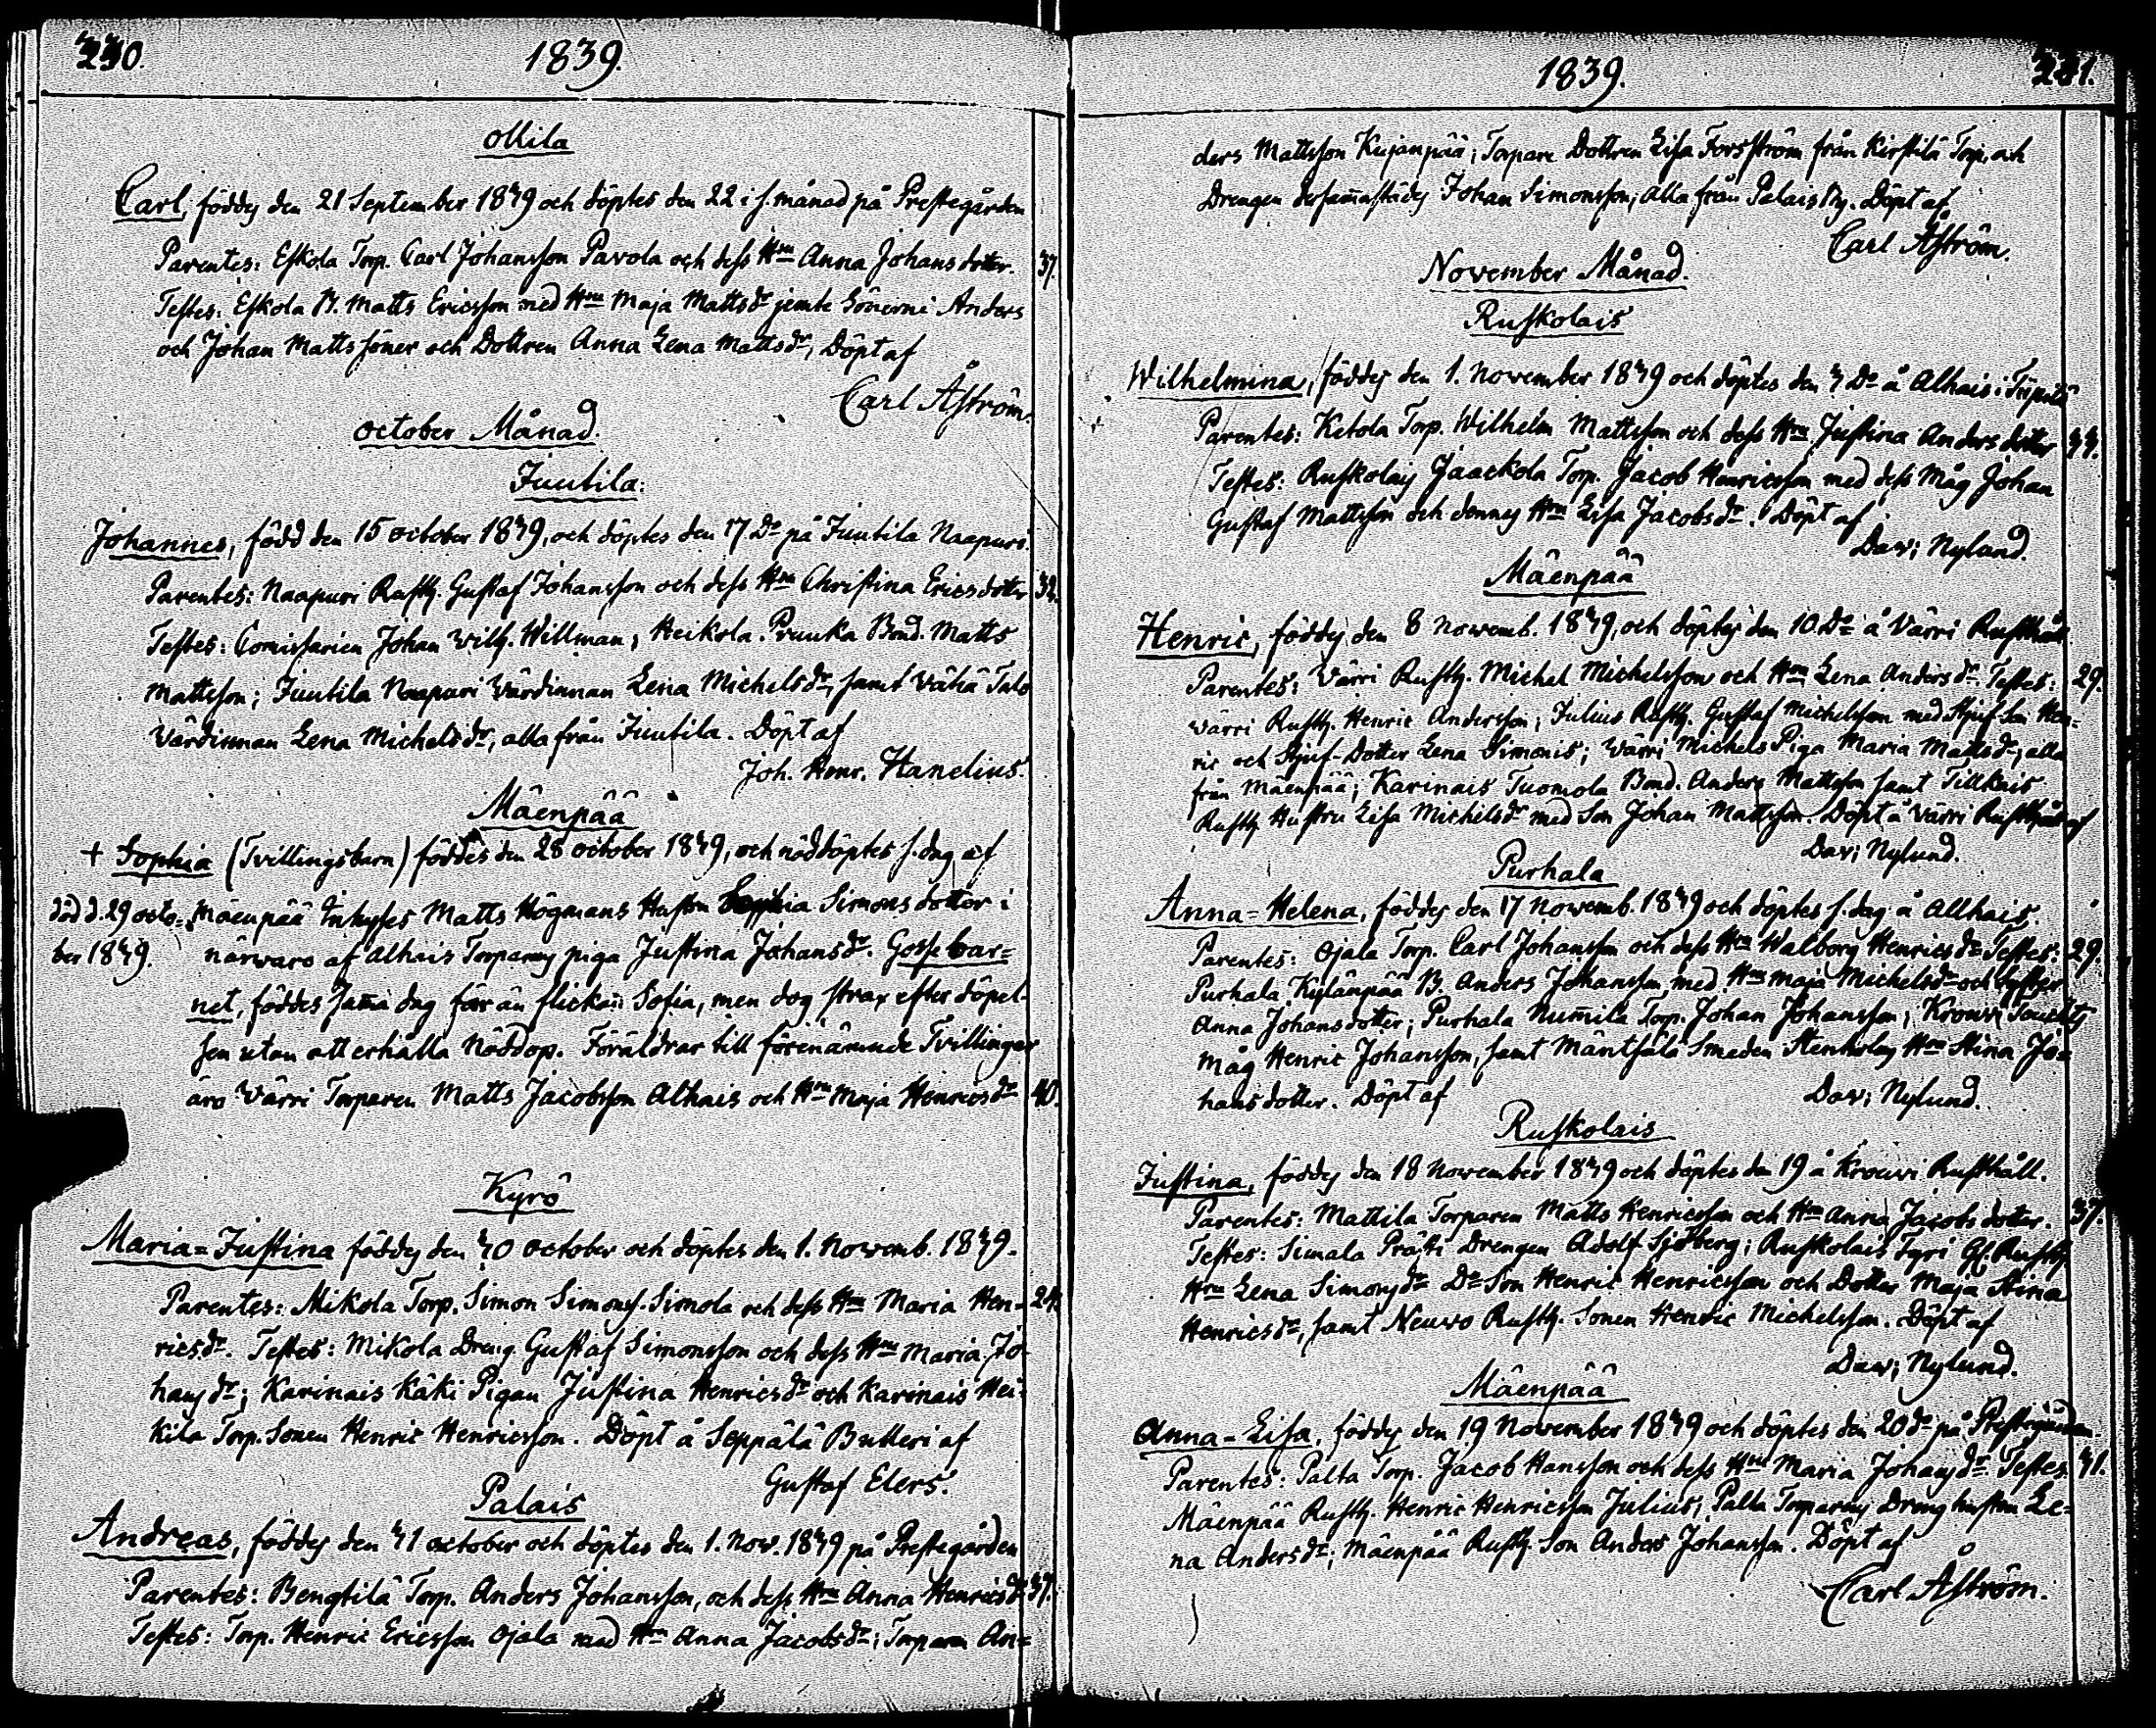 230.
1839.
Ollila
Carl, föddes den 21 September 1839 och döptes den 22 i s. månad på Prestegården
Parentes: Eskola Torp. Carl Johansson Pavola och dess Hru Anna Johans dotter. 37.
Testes: Eskola B. Matts Ericsson med Hru Maja Mattsdr jemte Sönerne Anders
och Johan Matts söner och Dottren Anna Lena Mattsdr, Döpt af
Carl Åström.
October Månad
Juutila:
Johannes, född den 15 october 1839, och döptes den 17. Do på Juutila Naapuri.
Parentes: Naapuri Rusth. Gustaf Johansson och dess Hru Christina Ericsdotter 32.
Testes: Comissarien Johan Wilh. Willman; Heikola Pruuka Bond. Matts
Mattsson; Juutila Naapuri Värdinnan Lena Michelsdr, samt Vähä Talo
Värdinnan Lena Michelsdr, alla från Juutila. Döpt af
Joh. Henr. Hanelius.
Mäenpää
+ Sophia (Tvillingsbarn) föddes den 28 october 1839, och nöddöptes s. dag af
död d. 29 octo= Mäenpää Inhyses Matts Högmans Hustru Sophia Simons dotter i
ber 1839. närwaro af Alhais Torparens piga Justina Johansdr. Gosse bar=
net, föddes samma dag för än flickan Sofia, men dog strax efter döpel=
sen utan att erhålla Nöddop. Föräldrar till förenämnde Tvillingar
äro Värri Torparen Matts Jacobsson Alhais och Hru Maja Henricsdr 40.
Kyrö
Maria=Justina föddes den 30 october och döptes den 1. Novemb. 1839.
Parentes: Mikola Torp. Simon Simonss. Simola och dess Hru Maria Hen= 24.
ricsdr. Testes: Mikola Dreng Gustaf Simonsson och dess Hru Maria Jo=
hansdr; Karinais Käki Pigan Justina Henricsdr och Karinais Hei=
kila Torp. Sonen Henric Henricsson. Döpt å Seppälä Butteri af
Gustaf Elers.
Palais
Andreas, föddes den 31 october och döptes den 1. Nov. 1839 på Prestegården
Parentes: Bengtilä Torp. Anders Johansson, och dess Hru Anna Henricsdr 37.
Testes: Torp. Henric Ericsson Ojala med Hru Anna Jacobsdr; Torparen An=
1839.
231.
ders Mattsson Kujanpää; Torpare Dottren Lisa Forsström från Kirstilä Torp, och
Drengen dersammastädes Johan Simonsson, alla från Palais By. Döpt af
Carl Åström.
November Månad.
Ruskolais
Wilhelmina, föddes den 1. November 1839 och döptes den 3 Do å Alhais i Tiipilä
Parentes: Ketola Torp. Wilhelm Mattsson och dess Hru Justina Anders dotter 33.
Testes: Ruskolais Jaackola Torp. Jacob Henricsson med dess Måg Johan
Gustaf Mattsson och dennes Hru Lisa Jacobsdr. Döpt af
Dav; Nylund.
Mäenpää
Henric, föddes den 8 Novemb. 1839, och döptes den 10. Do å Värri Rusthåll.
Parentes: Värri Rusth. Michel Michelsson och Hru Lena Andersdr. Testes: 29.
Värri Rusth. Henric Andersson; Julius Rusth. Gustaf Michelsson med Stjuf-Son Hen=
ric och Stjuf-Dotter Lena Simonis; Värri Michels Piga Maria Mattsdr; alla
från Mäenpää; Karinais Tuomola Bond. Anders Mattsson samt Tillkais
Rusth. Hustru Lisa Michelsdr med Son Johan Mattsson. Döpt å Värri Rusthåll af
Dav; Nylund.
Purhala
Anna=Helena, föddes den 17 Novemb. 1839 och döptes s. dag å Alhais.
Parentes: Ojala Torp. Carl Johansson och dess Hru Walborg Henricsdr Testes: 29.
Purhala Kylänpää B. Anders Johansson, med Hru Maja Michelsdr och Syster
Anna Johansdotter; Purhala Nummila Torp. Johan Johansson; Krouvi
Måg Henric Johansson, samt Mäntsälä Smeden Stenholms Hru Stina Jo=
hans dotter. Döpt af Dav; Nylund.
Ruskolais
Justina, föddes den 18 November 1839 och döptes den 19 å Krouvi Rusthåll.
Parentes: Mattila Torparen Matts Henricsson och Hru Anna Jacobs dotter. 37.
Testes: Simala Prästi Drengen Adolf Sjöberg; Ruskolais Tyri Gl. Rusth.
Hru Lena Simonsdr Do Son Henric Henricsson och Dotter Maja Stina
Henricsdr, samt Neuvo Rusth. Sonen Henric Michelsson. Döpt af
Dav; Nylund.
Mäenpää
Anna=Lisa, föddes den 19 November 1839 och döptes den 20 do på Prestegården.
Parentes: Palta Torp. Jacob Hansson och dess Hru Maria Johansdr. Testes: 31.
Mäenpää Rusth. Henric Henricsson Julius; Palta Torparens Dreng hustru Le=
na Andersdr; Mäenpää Rusth. Son Anders Johansson. Döpt af
Carl Åström.